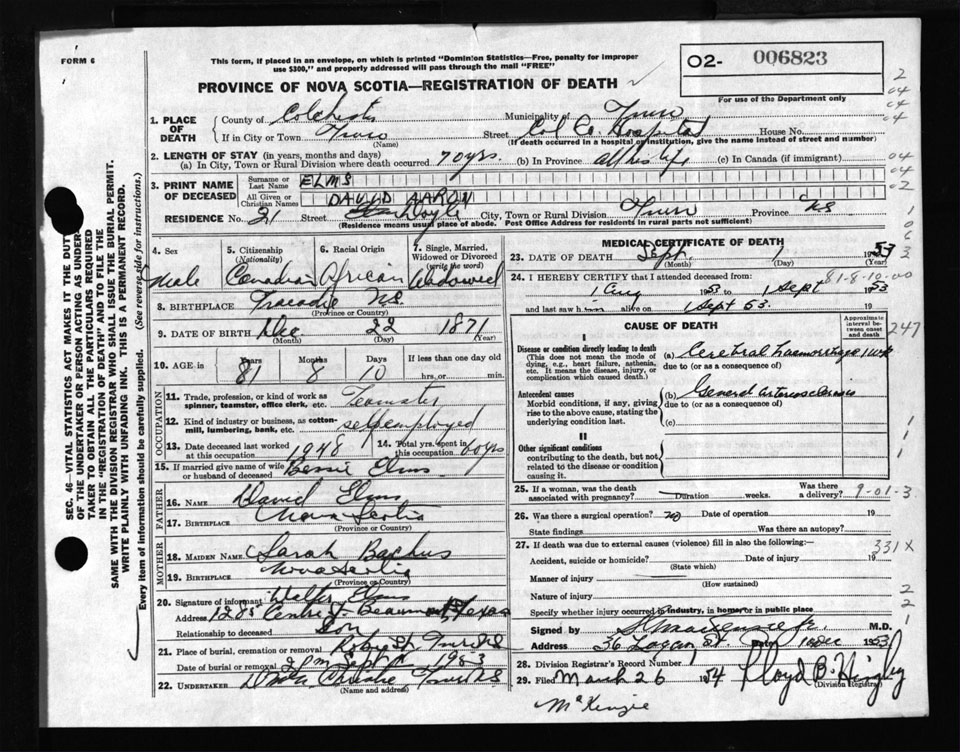 FORM 6
This form, if placed in an envelope, on which is printed "Dominion Statistics—Free, penalty for improper
use $300," and properly addressed will pass through the mail "FREE"
O2- 006823
For use of the Department only
PROVINCE OF NOVA SCOTIA—REGISTRATION OF DEATH
1. PLACE OF DEATH
County of Colchester Municipality of Truro
If in City or Town Truro Street Col Co. Hospital House No.
(Name) (If death occurred in a hospital or institution, give the name instead of street and number)
2. LENGTH OF STAY (in years, months and days)
(a) In City, Town or Rural Division where death occurred 70 yrs. (b) In Province all his life (c) In Canada (if immigrant)
3. PRINT NAME OF DECEASED
Surname or Last Name ELMS
All Given or Christian Names DAVID AARON
RESIDENCE No. 21 Street City, Town or Rural Division Truro Province NS
(Residence means usual place of abode. Post Office Address for residents in rural parts not sufficient)
4. Sex Male
5. Citizenship (Nationality) Canadian
6. Racial Origin African
7. Single, Married, Widowed or Divorced (write the word) Widowed
8. BIRTHPLACE Tracadie NS
(Province or Country)
9. DATE OF BIRTH Dec 22 1871
(Month) (Day) (Year)
10. AGE is Years 81 Months 8 Days 10 If less than one day old hrs. or min.
OCCUPATION
11. Trade, profession, or kind of work as spinner, teamster, office clerk, etc. Teamster
12. Kind of industry or business, as cotton-mill, lumbering, bank, etc. self employed
13. Date deceased last worked at this occupation 1948 14. Total yrs. spent in this occupation 60 yrs
15. If married give name of wife or husband of deceased Bessie Elms
FATHER
16. NAME David Elms
17. BIRTHPLACE Nova Scotia
(Province or Country)
MOTHER
18. MAIDEN NAME Sarah Backus
19. BIRTHPLACE Nova Scotia
(Province or Country)
20. Signature of informant Walter Elms
Address 1285 Beaumont Texas
Relationship to deceased Son
21. Place of burial, cremation or removal Robie St Truro NS
Date of burial or removal 2 pm Sept 1953
22. UNDERTAKER Christie Truro NS
(Name and address)
MEDICAL CERTIFICATE OF DEATH
23. DATE OF DEATH Sept. 1 1953
(Month) (Day) (Year)
81-8-10-00
24. I HEREBY CERTIFY that I attended deceased from
1 Aug 1953 to 1 Sept 1953
and last saw h alive on 1 Sept 53. 19
CAUSE OF DEATH
Approximate interval between onset and death
247
I
Disease or condition directly leading to death
(This does not mean the mode of dying, e.g., heart failure, asthenia, etc. It means the disease, injury, or complication which caused death.)
(a) Cerebral haemorrhage 1 wk
due to (or as a consequence of)
Antecedent causes
Morbid conditions, if any, giving rise to the above cause, stating the underlying condition last.
(b) General arteriosclerosis
due to (or as a consequence of)
(c)
II
Other significant conditions
contributing to the death, but not related to the disease or condition causing it.
25. If a woman, was the death associated with pregnancy? Duration weeks. Was there a delivery?
9-01-3
26. Was there a surgical operation? no Date of operation 19
State findings Was there an autopsy?
27. If death was due to external causes (violence) fill in also the following:
331X
Accident, suicide or homicide? Date of injury 19
(State which)
Manner of injury
(How sustained)
Nature of injury
Specify whether injury occurred in industry, in home or in public place
Signed by M.D.
Address 36 Logan St. 10 Dec 1953
28. Division Registrar's Record Number
29. Filed March 26 1954 Lloyd B. Hingley
(Division Registrar)
McKenzie
SEC. 46—VITAL STATISTICS ACT MAKES IT THE DUTY
OF THE UNDERTAKER OR PERSON ACTING AS UNDER-
TAKER TO OBTAIN ALL THE PARTICULARS REQUIRED
IN THE "REGISTRATION OF DEATH" AND TO FILE THE
SAME WITH THE DIVISION REGISTRAR WHO SHALL ISSUE THE BURIAL PERMIT.
WRITE PLAINLY WITH UNFADING INK. THIS IS A PERMANENT RECORD.
Every item of information should be carefully supplied. (See reverse side for instructions.)